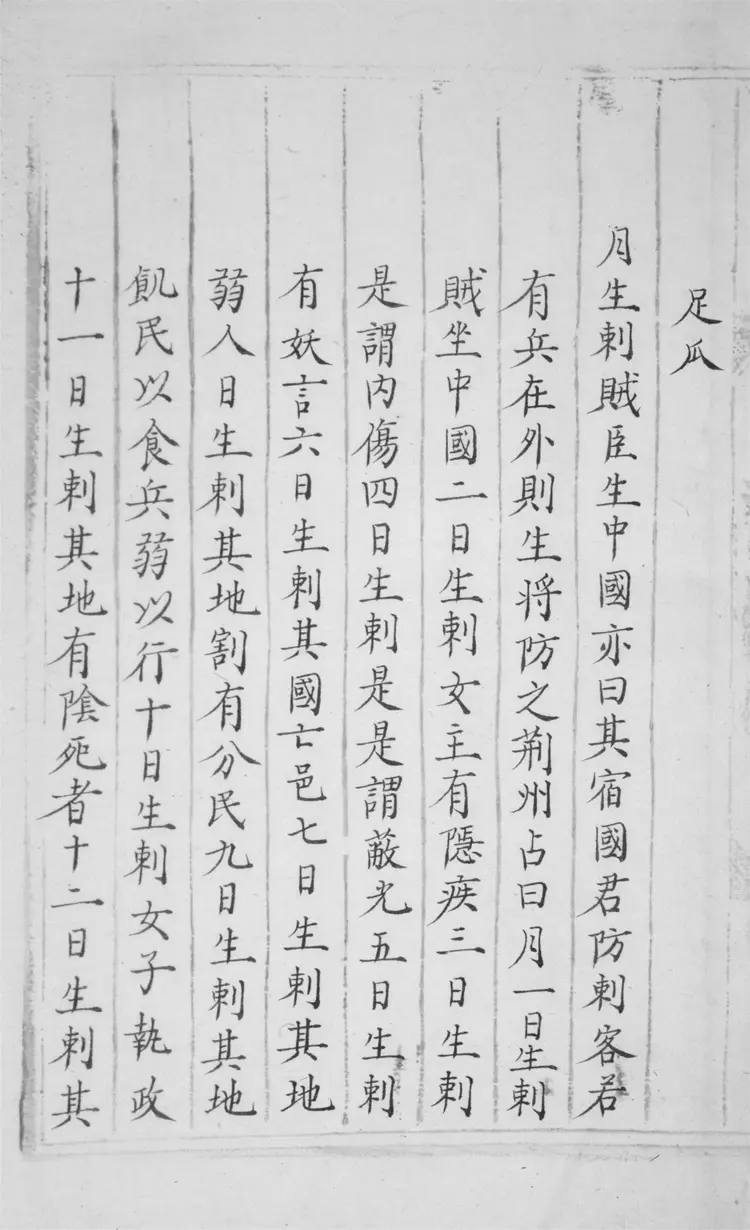 足瓜
月生刺賊臣生中國亦曰其宿國君防刺客若
有兵在外則生将防之荆州占曰月一日生刺
賊坐中國二日生刺女主有隱疾三日生刺
是謂内傷四日生刺是是謂蔽光五日生刺
有妖言六日生刺其國亡邑七日生刺其地
蒻人日生刺其地割有分民九日生刺其地
飢民以食兵蒻以行十日生刺女子執政
十一日生刺其地有陰死者十二日生刺其